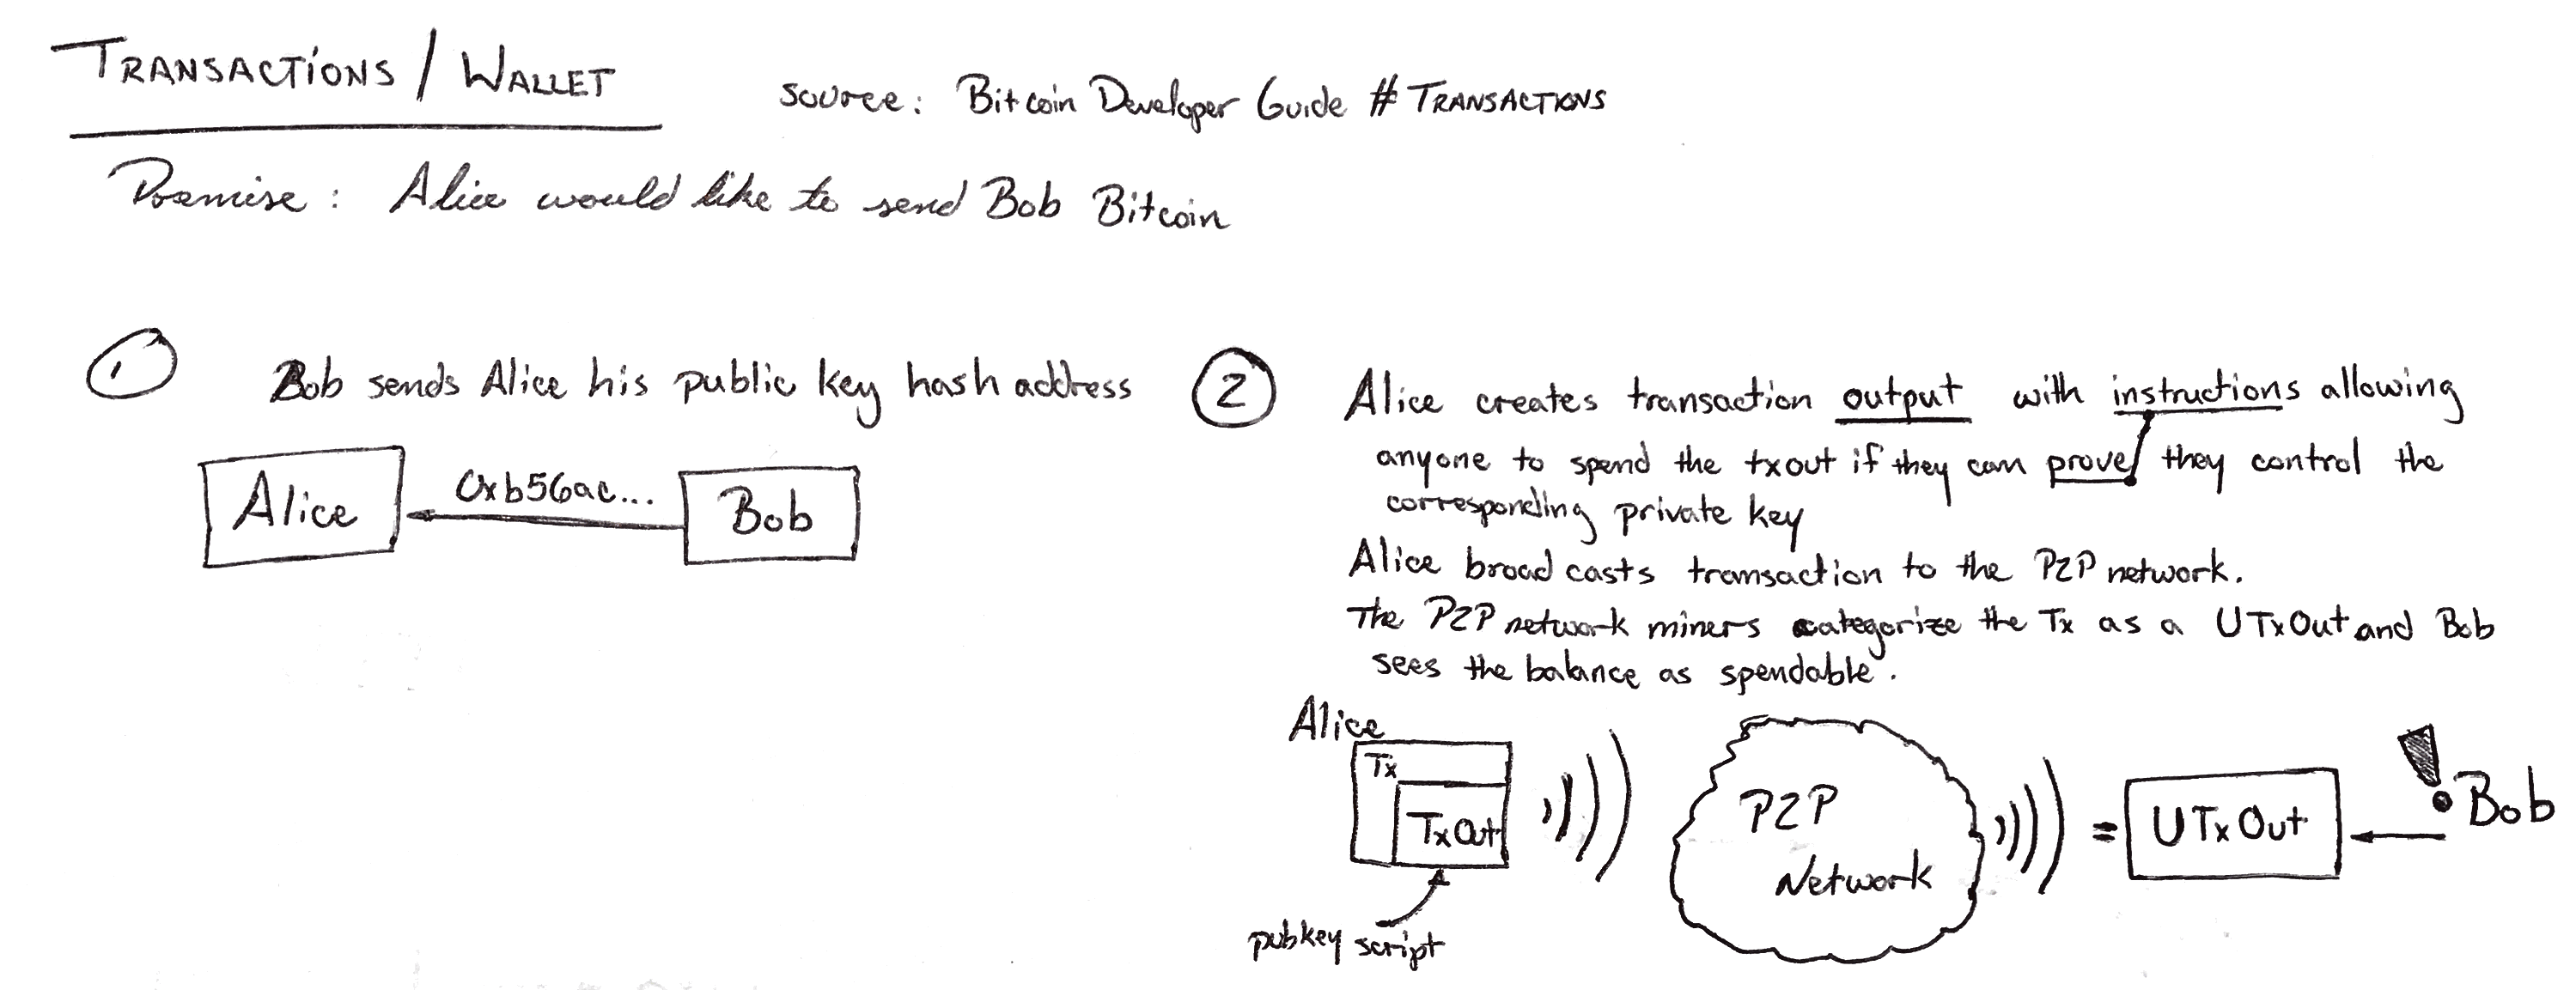 TRANSACTIONS / WALLET
source: Bitcoin Developer Guide # TRANSACTIONS
Premise: Alice would like to send Bob Bitcoin
1 Bob sends Alice his public key hash address
Alice
0xb56ac...
Bob
2 Alice creates transaction output with instructions allowing
anyone to spend the txout if they can prove they control the
corresponding private key
Alice broadcasts transaction to the P2P network.
The P2P network miners categorize the Tx as a UTxOut and Bob
sees the balance as spendable.
Alice
Tx
TxOut
pubkey script
P2P
Network
=
UTxOut
! Bob